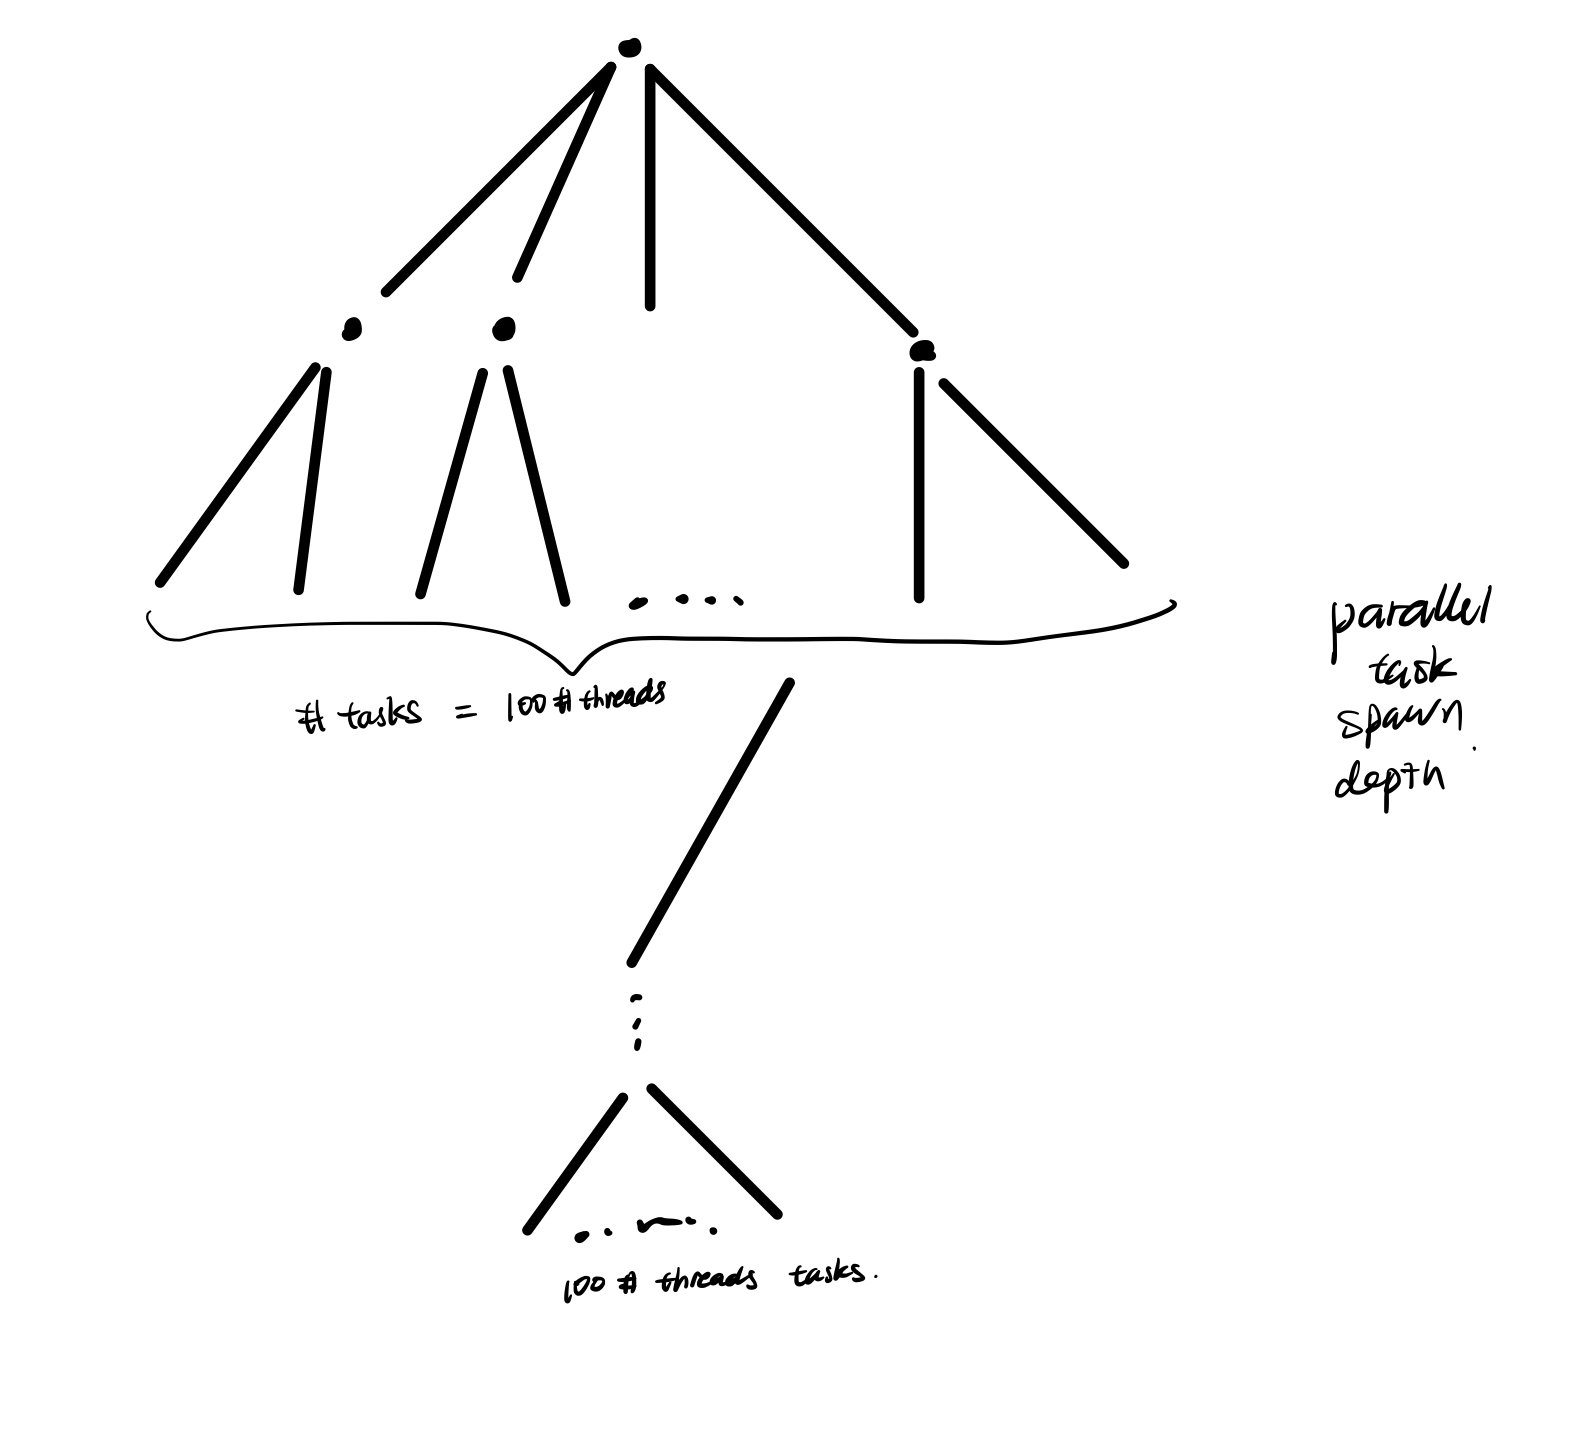 # tasks = 100 # threads
parallel
task
spawn
depth
100 # threads tasks.